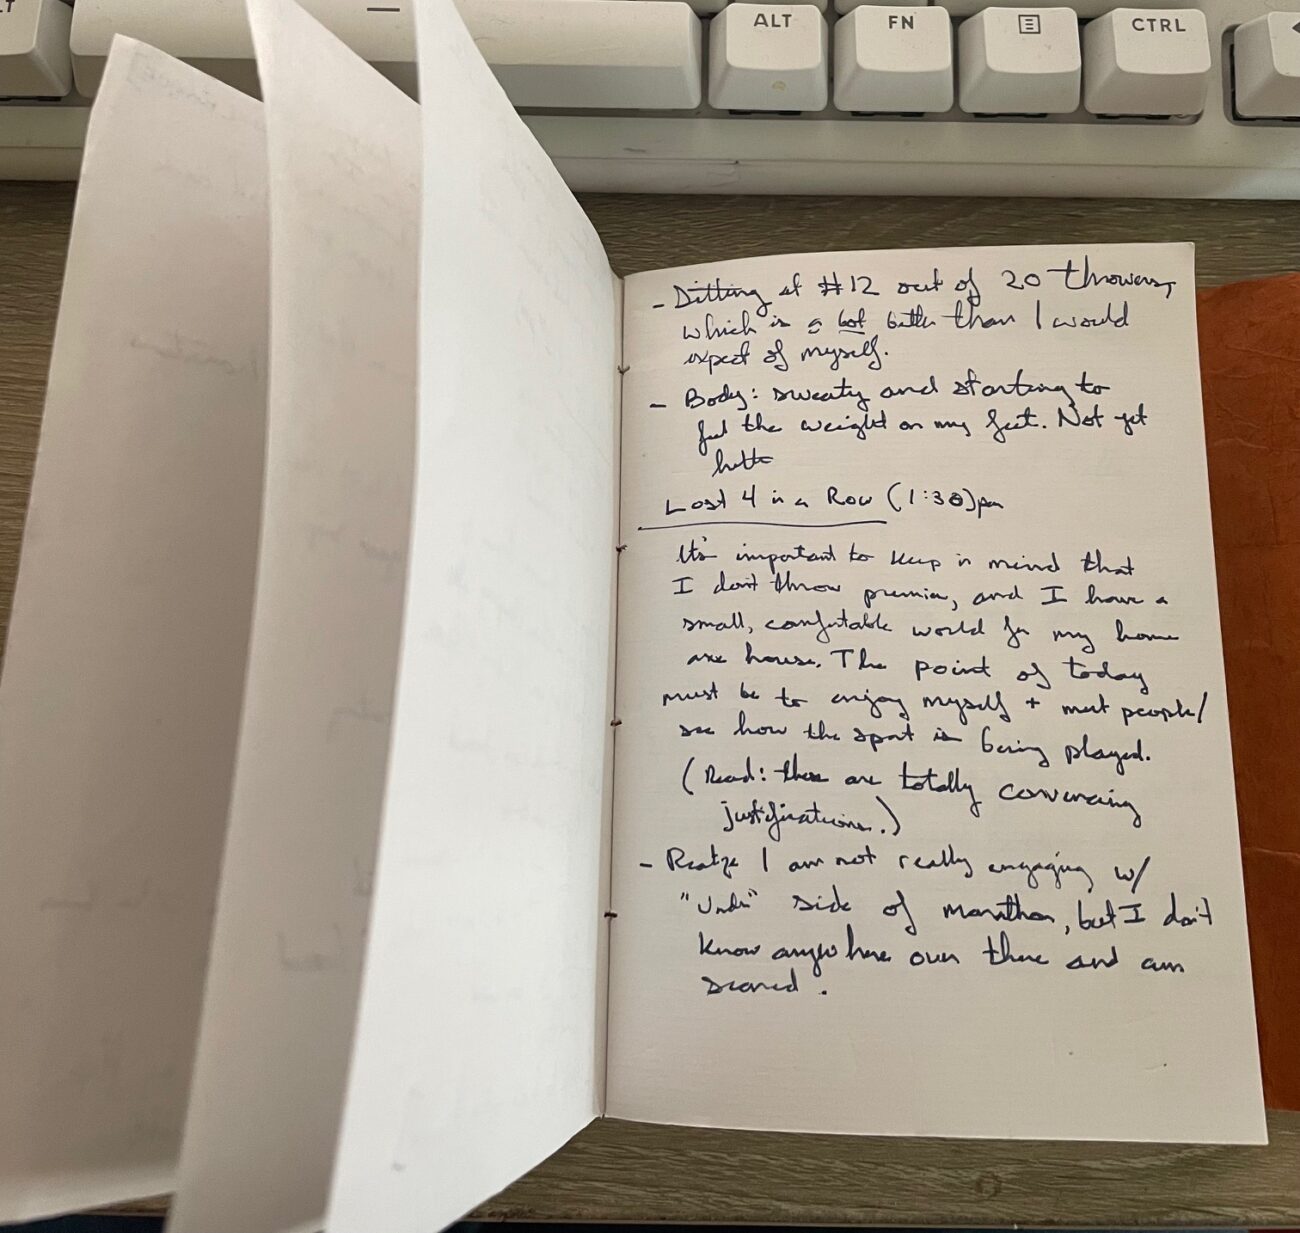 ALT
FN
CTRL
- Sitting at #12 out of 20 throwers,
which is a lot better than I would
expect of myself.
- Body: sweaty and starting to
feel the weight on my feet. Not yet
Lost 4 in a Row (1:30)pm
It's important to keep in mind that
I don't throw premier, and I have a
small, comfortable world for my home
axe house. The point of today
must be to enjoy myself + meet people/
see how the sport is being played.
(Read: these are totally convincing
justifications.)
- Realize I am not really engaging w/
"Under" side of marathon, but I don't
know anywhere over there and am
scared.